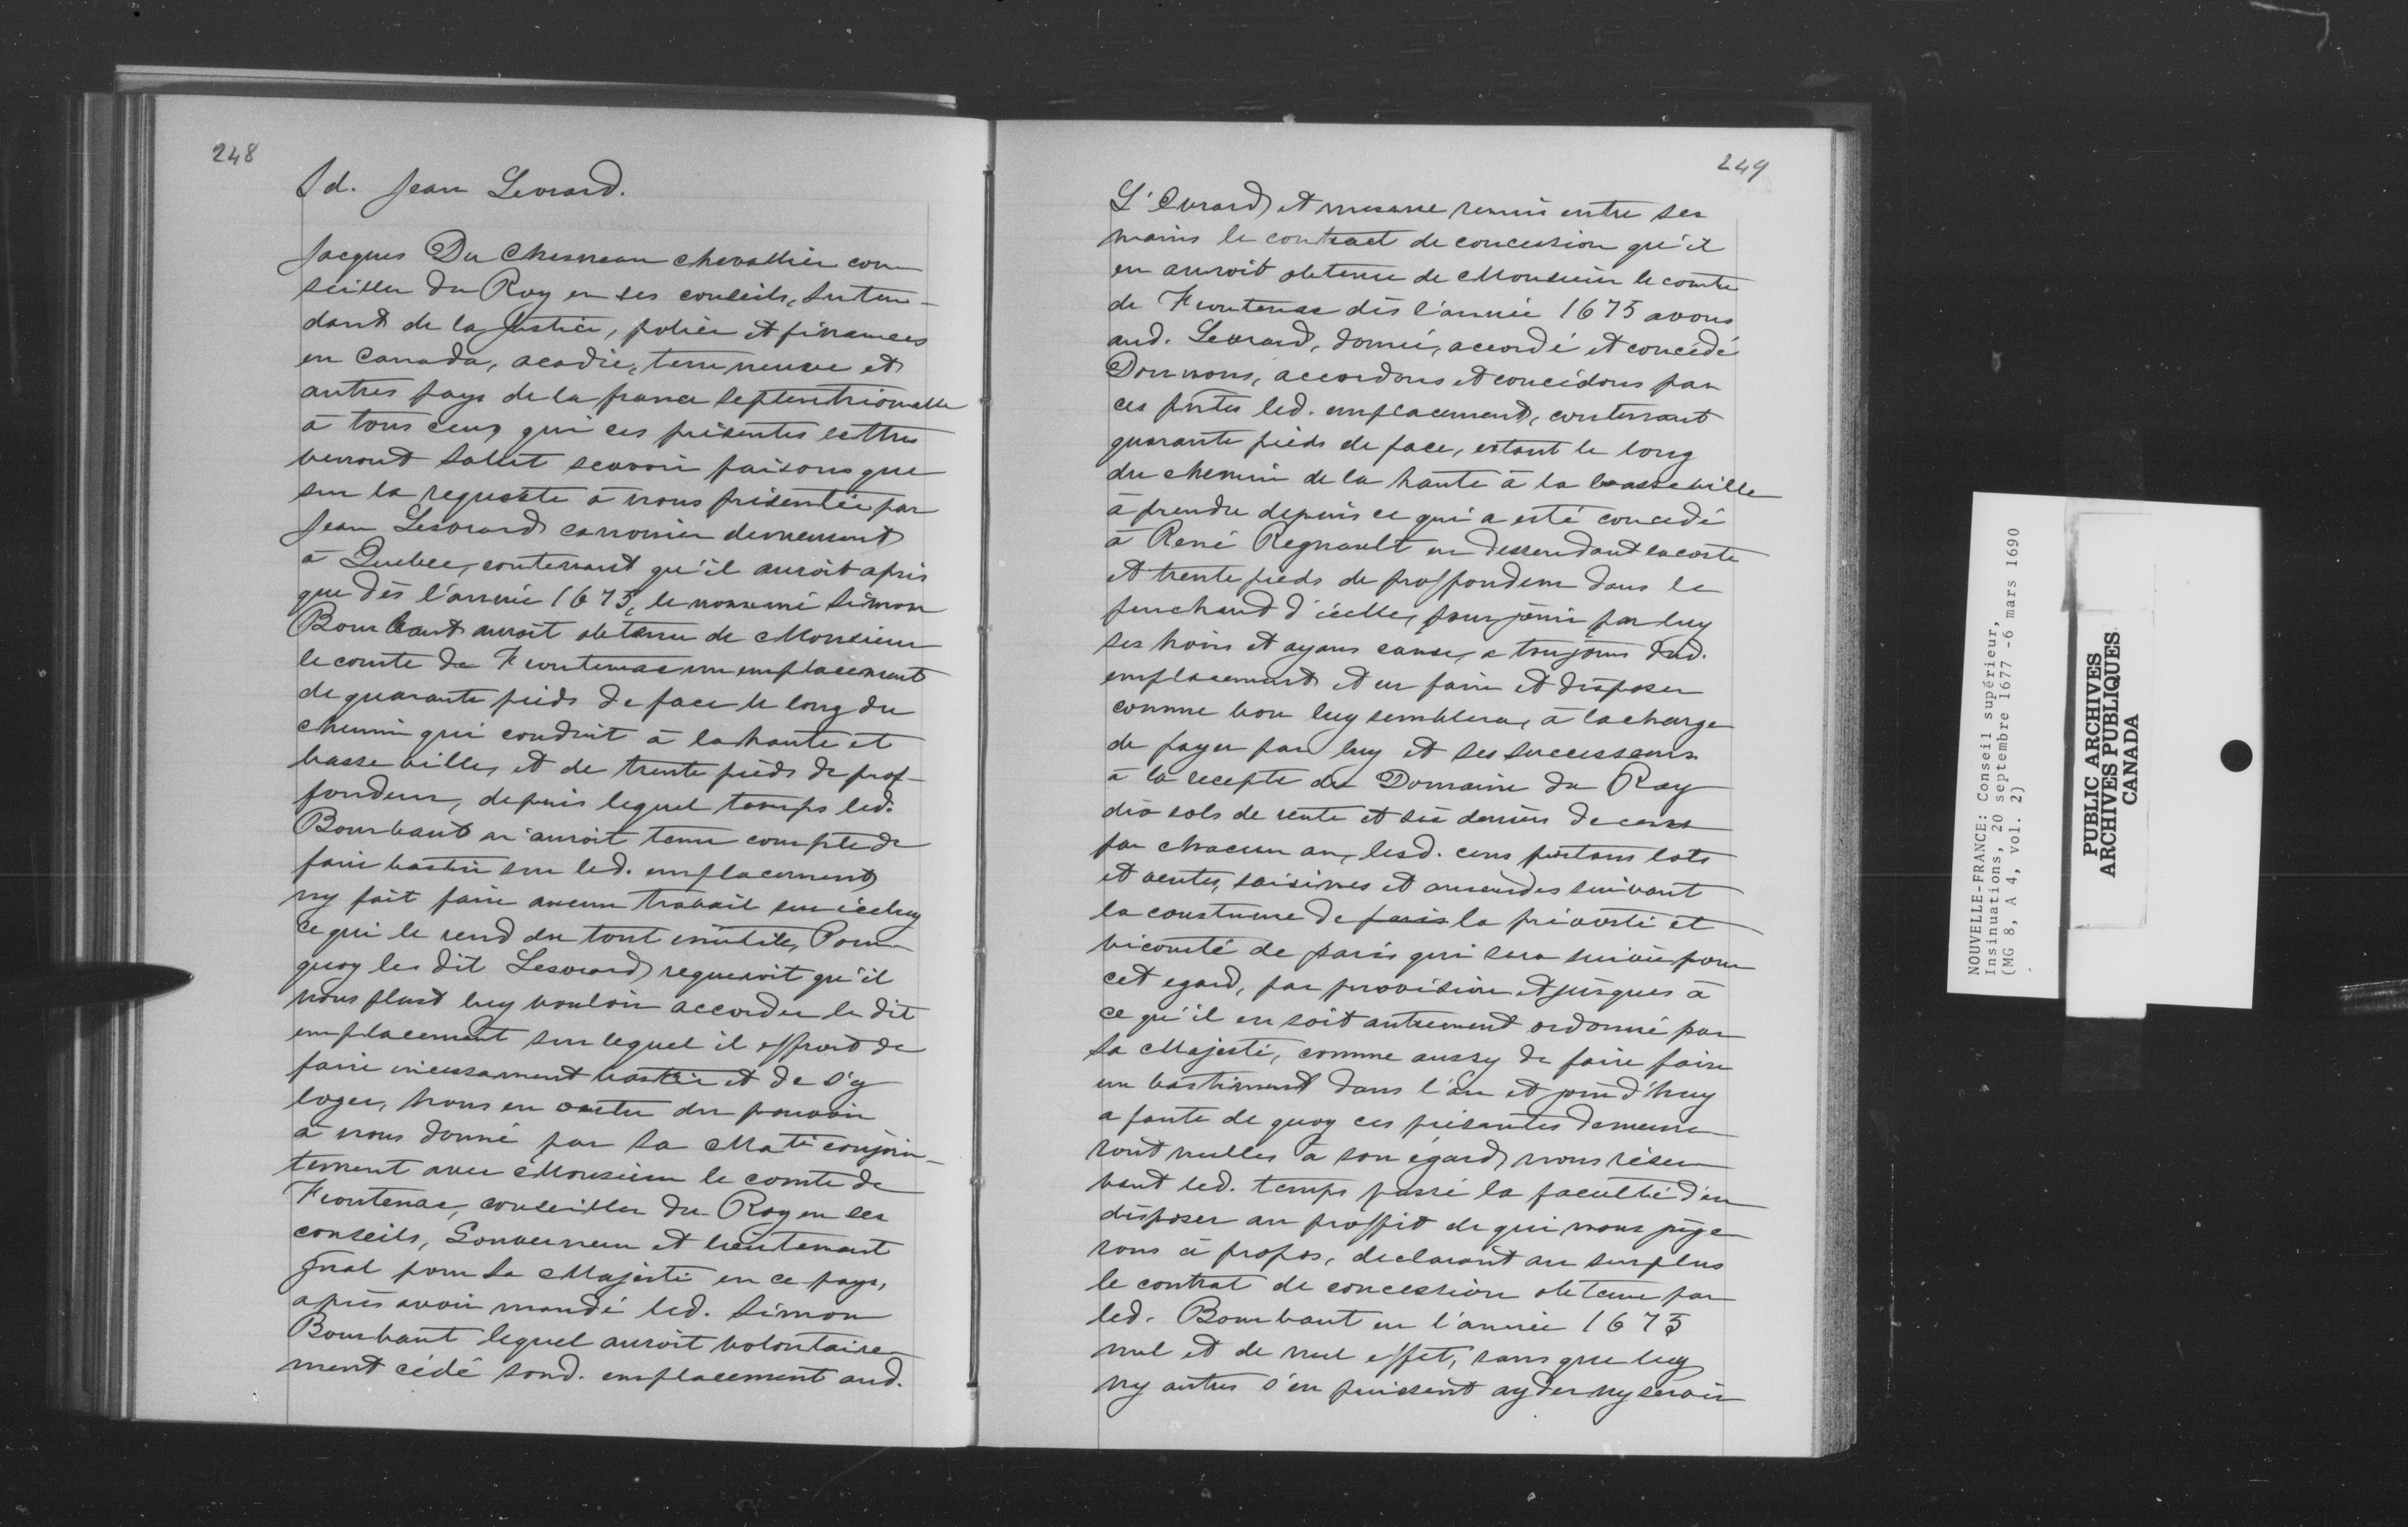 248
Id. Jean Levrard.
Jacques Du Chesneau chevallier con
seiller du Roy en ses conseils, Inten-
dant de la Justice, police et finances
en Canada, acadie, terre neusve et
autres pays de la france septentrionalle
à tous ceux qui ces présentes lettres
verront Salut scavoir faisons que
sur la requeste à nous présentée par
Jean Lesvrard canonier demeurant
à Quebec, contenant qu'il auroit apris
que dès l'année 1675, le nommé Simon
Bourbaut auroit obtenu de Monsieur
le comte de Frontenac un emplacement
de quarante pieds de face le long du
chemin qui conduit à la haute et
basse ville, et de trente pieds de prof-
fondeur, depuis lequel temps led.
Bourbaut n'auroit tenu compte de
faire bastir sur led. emplacement
ny fait faire aucun travail sur iceluy
ce qui le rend du tout inutile, Pour
quoy les dit Lesvrard requeroit qu'il
nous plust luy vouloir accorder le dit
emplacement sur lequel il offroit de
faire incessament bastir et de s'y
loger, Nous en vertu du pouvoir
à nous donné par Sa Maté conjoin-
tement avec Monsieur le comte de
Frontenac, conseiller du Roy en ses
conseils, Gouverneur et lieutenant
gnal pour Sa Majesté en ce pays,
après avoir mandé led. Simon
Bourbaut lequel auroit volontaire
ment cédé sond. emplacement aud.
249
L'Evrard et mesme remis entre ses
mains le contract de concession qu'il
en auroit obtenu de Monsieur le comte
de Frontenac dès l'année 1675 avons
aud. Levrard, donné, accordé et concédé
Donnons, accordons et concédons par
ces pntes led. emplacement, contenant
quarante pieds de face, estant le long
du chemin de la haute à la basse ville
à prendre depuis ce qui a esté concédé
à René Regnault en dessendant la coste
et trente pieds de proffondeur dans le
penchand d'icelle, pour jouir par luy
ses hoirs et ayans cause, a toujours dud.
emplacement et en faire et disposer
comme bon luy semblera, à la charge
de payer par luy et ses successeurs
à la recepte du Domaine du Roy
dix sols de rente et six deniers de cens
par chacun an, lesd. cens portans lots
et ventes, saisines et amendes suivant
la coustume de paris la prévosté et
vicomté de paris qui sera suivie pour
cet egard, par provision et jusques à
ce qu'il en soit autrement ordonné par
Sa Majesté, comme aussy de faire faire
un bastiment dans l'an et jour d'huy
a faute de quoy ces présantes demeure
ront nulles à son égard nous réser
vant led. temps passé la faculté d'en
disposer au proffit de qui nous juge
rons à propos, declarant au surplus
le contrat de concession obtenu par
led. Bourbaut en l'année 1675
nul et de nul effet, sans que luy
ny autres s'en puissent ayder ny servir
NOUVELLE-FRANCE: Conseil supérieur,
Insinuations, 20 septembre 1677 -6 mars 1690
(MG 8, A 4, vol. 2)
PUBLIC ARCHIVES
ARCHIVES PUBLIQUES
CANADA